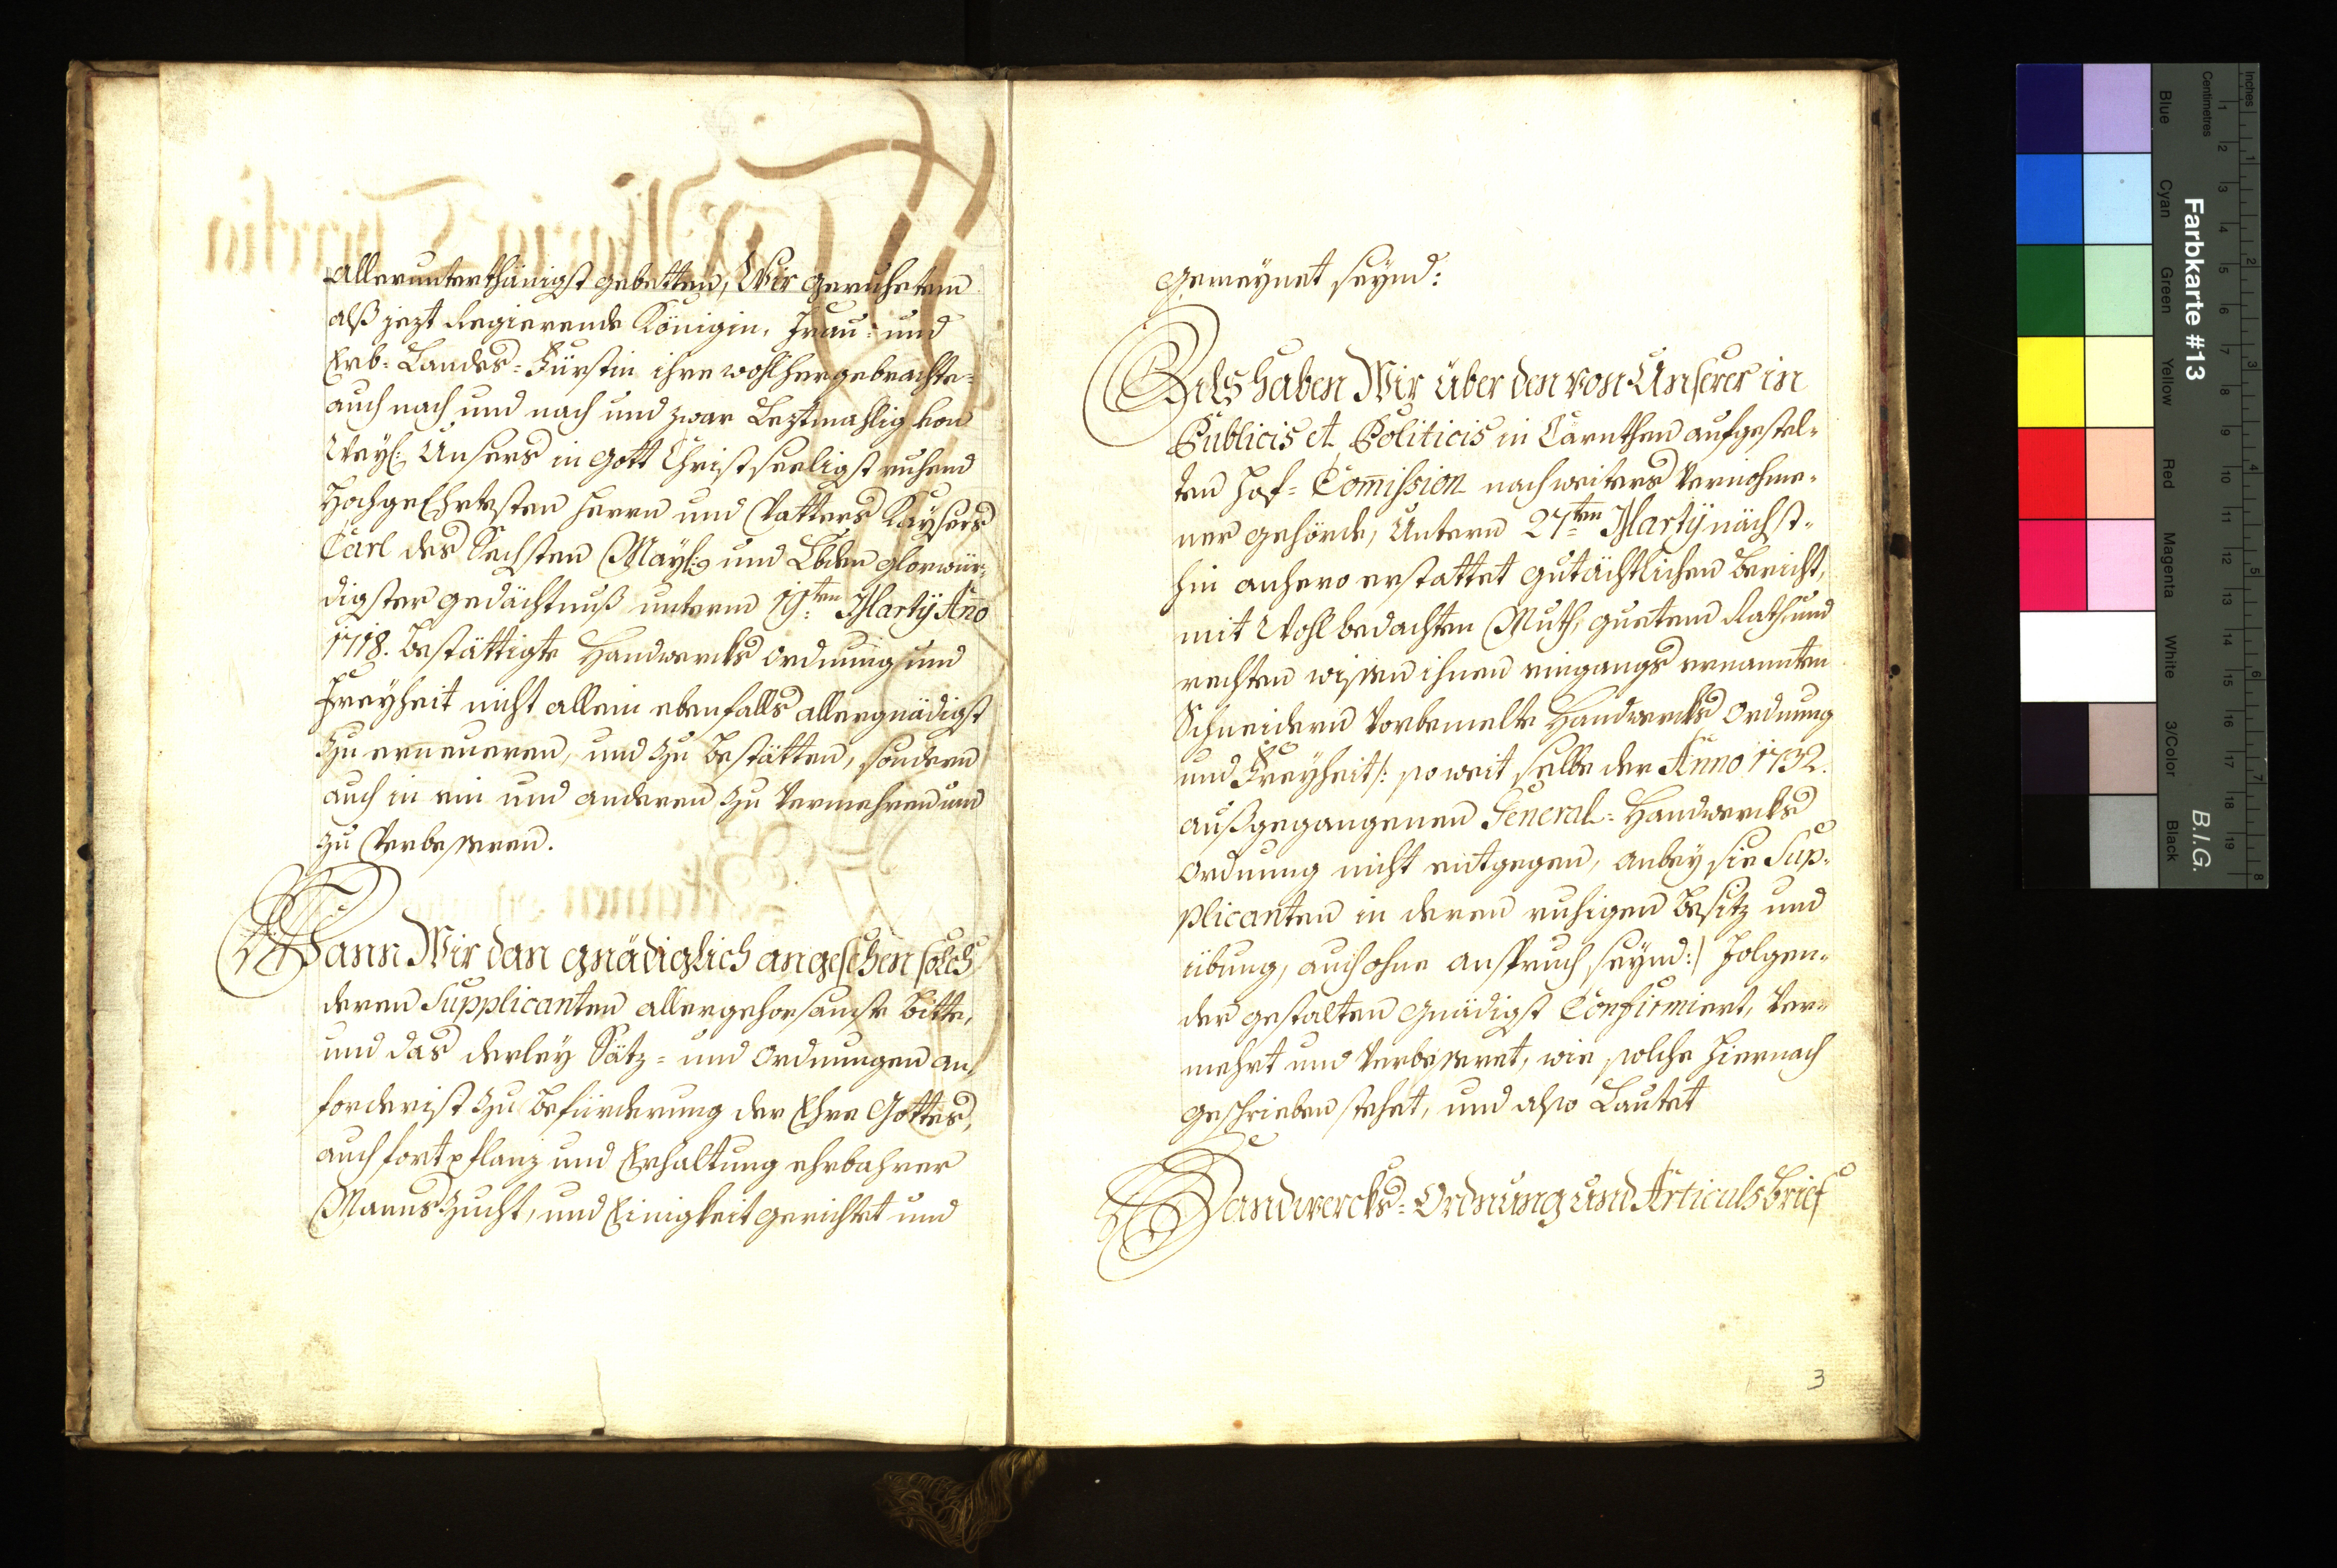 allerunterthänigst gebetten, Wir geruheten
alß jezt Regierende Königin, Frau= und
Erb= Landes= Fürstin ihre wohlhergebrachte=
auch nach und nach und zwar Leztmahlig von
Weyl: Unsers in Gott Christseeligst ruhend
Hochgeehrtesten Herrn und Vatters Kaysers
Carl des Sechsten May: und Lbden glorwür-
digster gedächtnuß unterm 19:ten Martÿ Anno
1718. bestättigte Handwercks ordnung und
Freyheit nicht allein ebenfalls allergnädigst
zu erneueren, und zu bestätten, sondern
auch in ein und anderen zu Vermehren und
zu Verbesseren.
Wann Wir dan gnädiglich angesehen solch
deren Supplicanten allergehorsamste bitte,
und das derley Sätz= und ordnungen an
forderist zu befürderung der Ehre Gottes,
auch fortpflanz und Erhaltung ehrbahrer
Manns zucht, und Einigkeit gerichtet und
gemeynet seynd:
Als haben Wir über den von Unserer in
Publicis et Politicis in Cärnthen aufgestel-
ten Hof= Commission nach weiters Vernohme-
ner gehörde, Untern 27:ten Martÿ nächst-
hin anhero erstattet gutächtlichen bericht,
mit Wohlbedachten Muth, guetem Rath, und
rechten wissen ihnen eingangs ernannten
Schneidern Vorbemelte Handwercks ordnung
und Freyheit /: so weit selbe der Anno 1732.
außgegangenen General= Handwercks
ordnung nicht entgegen, anbey sie Sup-
plicanten in deren ruhigen besitz und
übung, auch ohne anspruch seynd :/ folgen-
der gestalten gnädigst Confirmiert, Ver-
mehrt und Verbesseret, wie solche hiernach
geschrieben stehet, und also Lautet
Handwercks= Ordnung und Articuls brief
3
Farbkarte #13
B.I.G.
Inches
Centimetres
Blue
Cyan
Green
Yellow
Red
Magenta
White
3/Color
Black
1 2 3 4 5 6 7 8 9 10 11 12 13 14 15 16 17 18 19
1 2 3 4 5 6 7 8